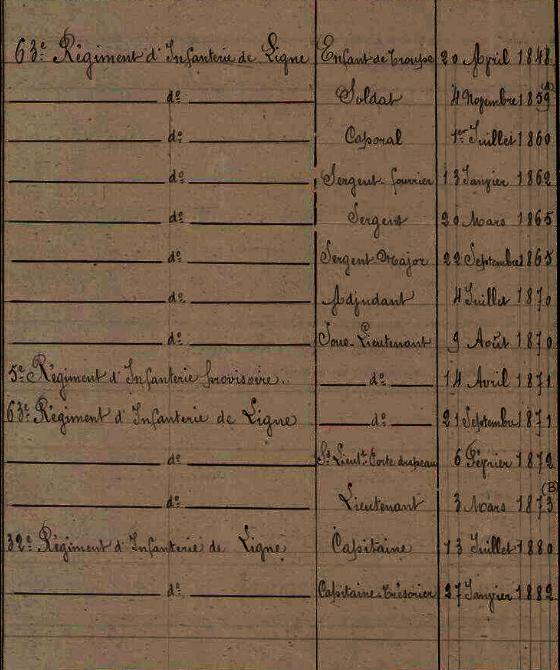 63e Régiment d'Infanterie de Ligne Enfant de Troupe 20 Avril 1848
do Soldat 4 Novembre 1859 (A)
do Caporal 1er Juillet 1860
do Sergent-fourrier 13 Janvier 1862
do Sergent 20 Mars 1865
do Sergent Major 22 Septembre 1865
do Adjudant 4 Juillet 1870
do Sous-Lieutenant 9 Août 1870
5e Régiment d'Infanterie provisoire. do 14 Avril 1871
63e Régiment d'Infanterie de Ligne do 21 Septembre 1871
do St Lieutt Porte drapeau 6 Février 1872
do Lieutenant 3 Mars 1873 (B)
32e Régiment d'Infanterie de Ligne Capitaine 13 Juillet 1880
do Capitaine-Trésorier 27 Janvier 1882